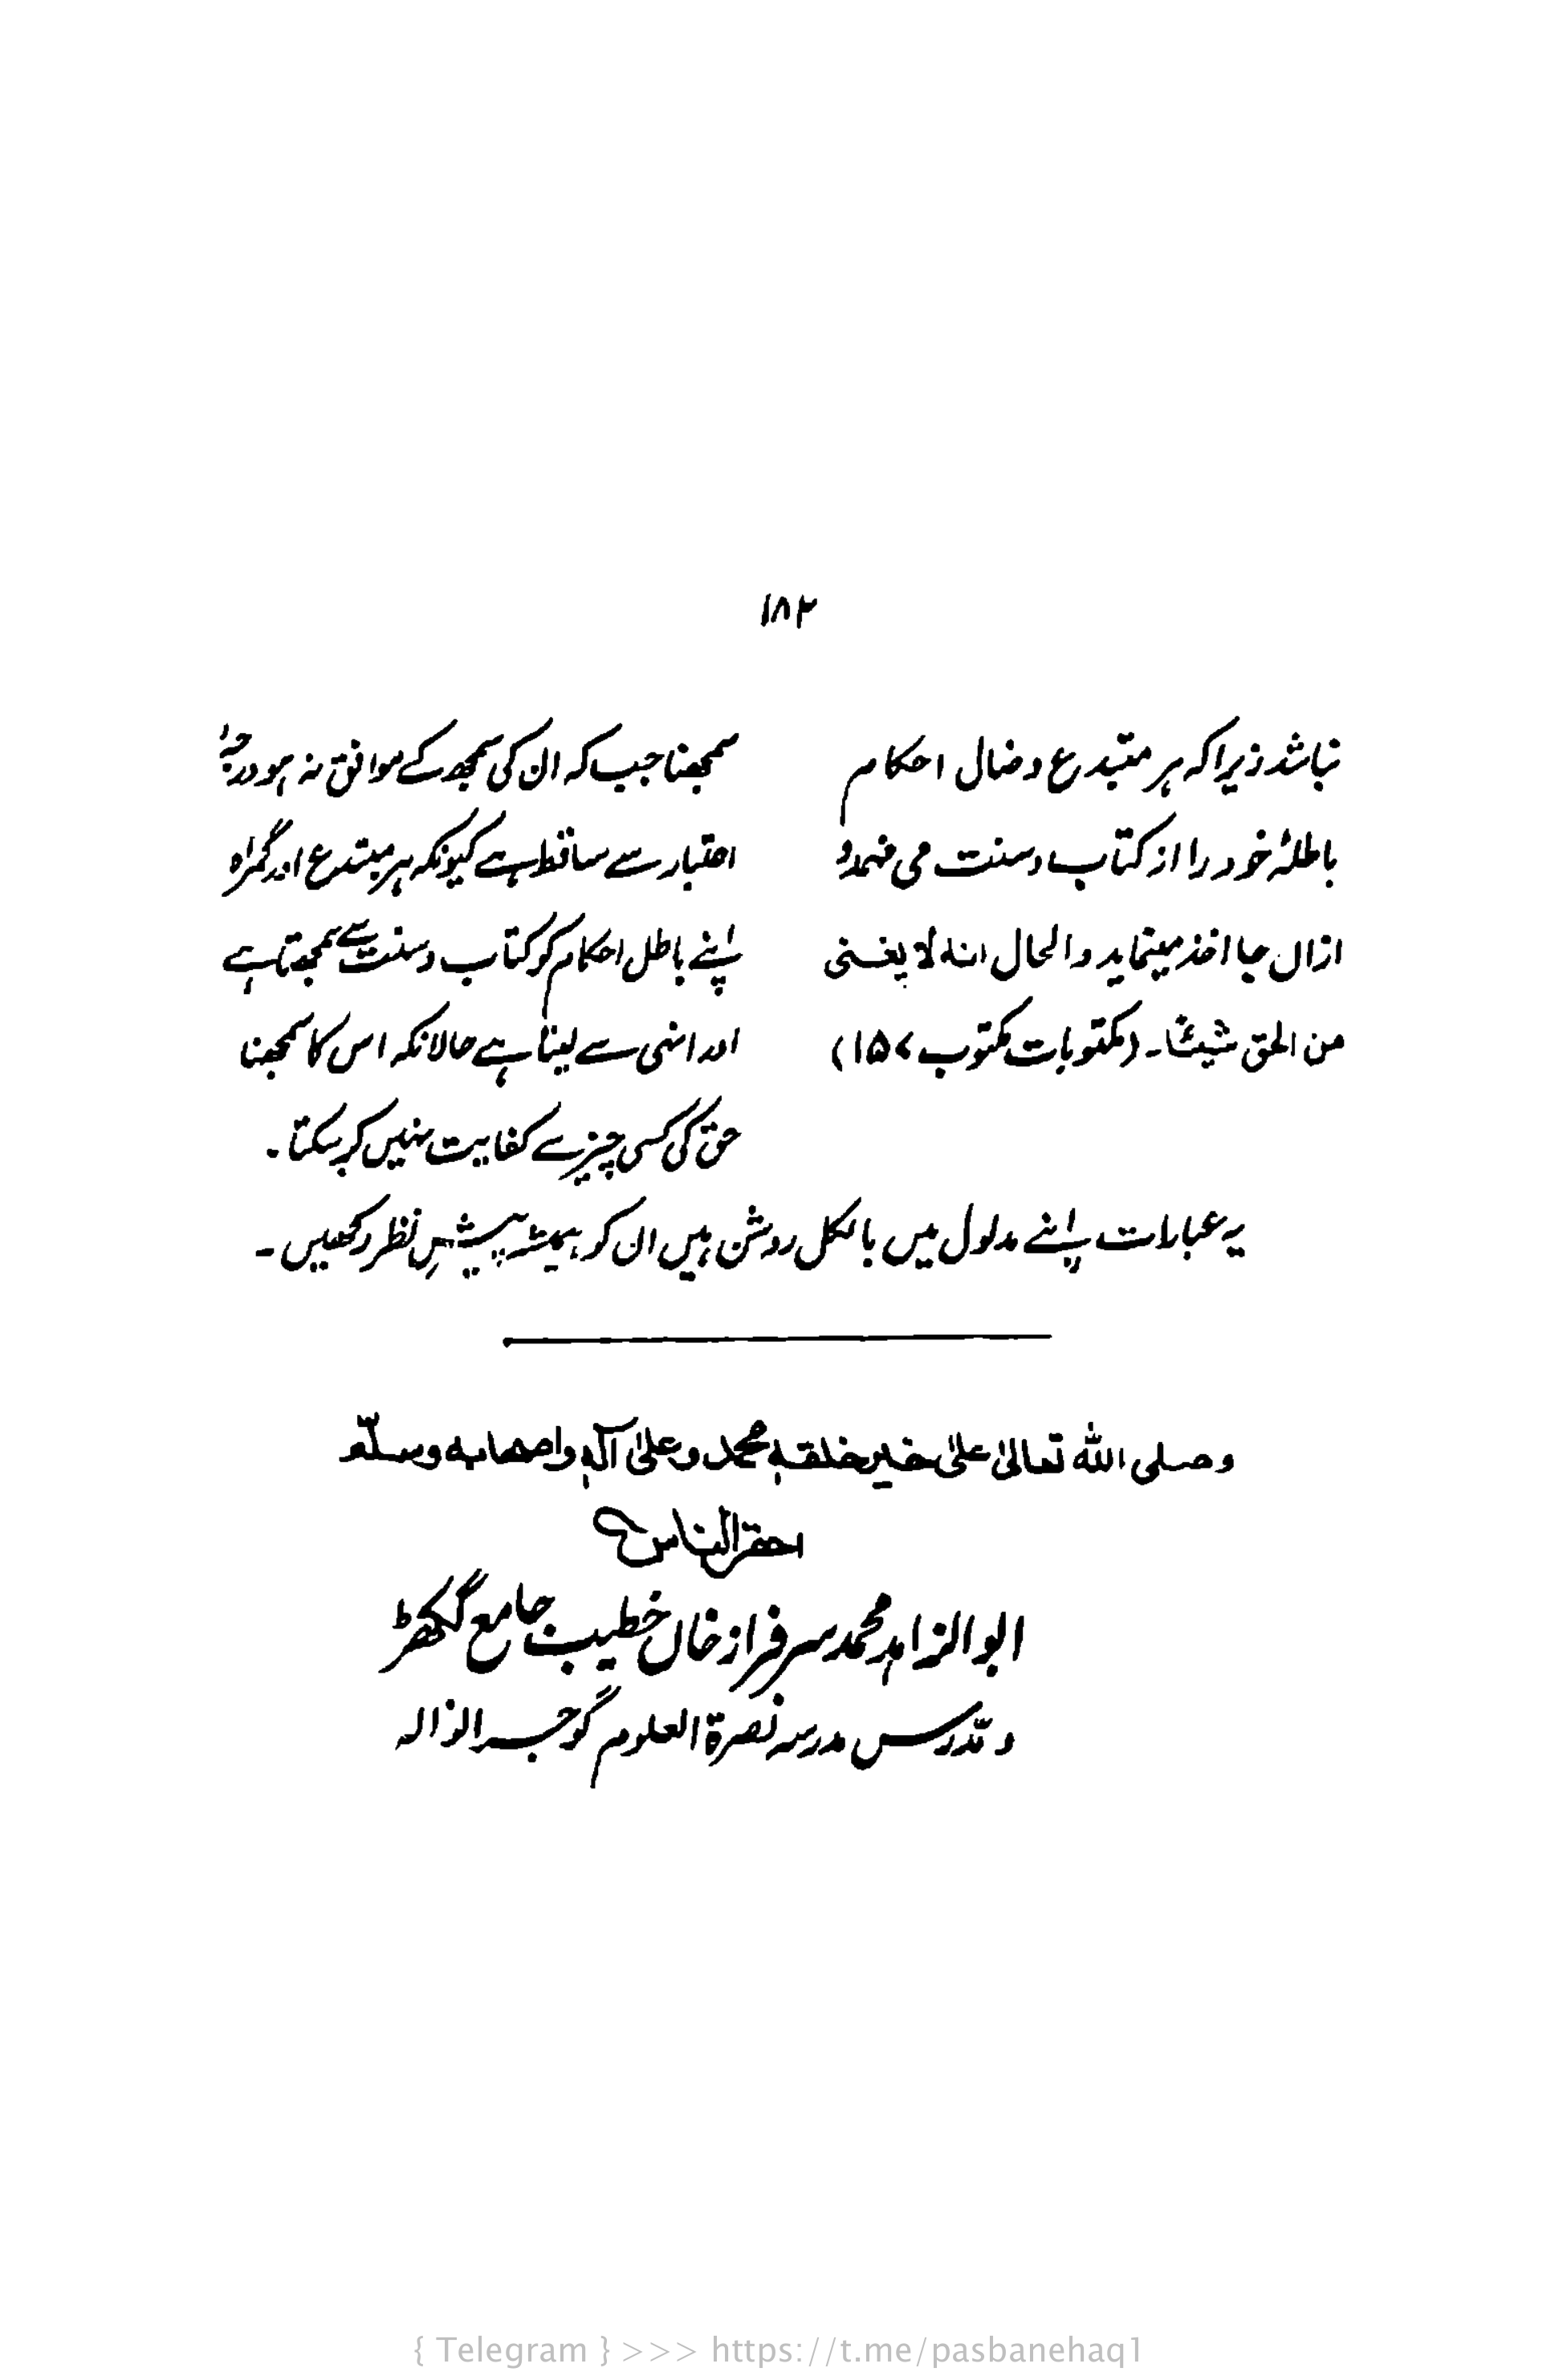 ۱۸۲
نباشد زیرا کہ ہر مبتدع و ضال احکام
باطلۂ خود را از کتاب و سنت می فہمد و
ازاں جا اخذ مینماید والحال انہ لا یغنی
من الحق شیئًا۔ (مکتوبات مکتوب ۱۵۷)
سمجھنا جب کہ ان کی سمجھ کے موافق نہ ہو درجۂ
اعتبار سے ساقط ہے کیونکہ ہر مبتدع اور گمراہ
اپنے باطل احکام کو کتاب و سنت سے سمجھتا ہے
اور انہی سے لیتا ہے حالانکہ اس کا سمجھنا
حق کی کسی چیز سے کفایت نہیں کر سکتا۔
یہ عبارات اپنے مدلول میں بالکل روشن ہیں ان کو ہمیشہ پیشِ نظر رکھیں۔
وصلی اللہ تعالیٰ علیٰ خیر خلقہٖ محمد وعلیٰ آلہٖ واصحابہ وسلّم
احقر الناس
ابوالزاہد محمد سرفراز خاں خطیب جامع گکھڑ
و مدّرس مدرسہ نصرۃ العلوم گوجرانوالہ
{ Telegram } >>> https://t.me/pasbanehaq1